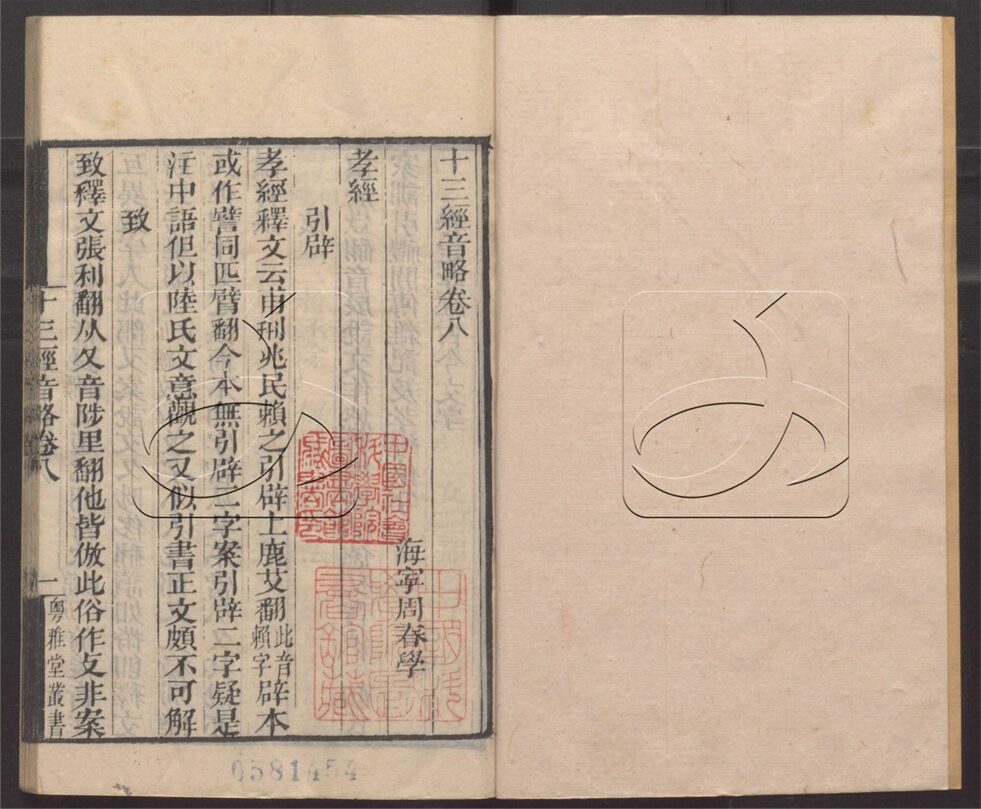 十三經音略卷八
海寧周春學
孝經
引辟
孝經釋文云甫刑兆民賴之引辟上鹿艾翻此音賴字辟本
或作譬同匹臂翻今本無引辟二字案引辟二字疑是
注中語但以陸氏文意觀之又似引書正文頗不可解
致
致釋文張利翻从夂音陟里翻他皆倣此俗作攵非案
十三經音略卷八
一
粵雅堂叢書
中國社會
科學院
圖書館
藏書印
0581454